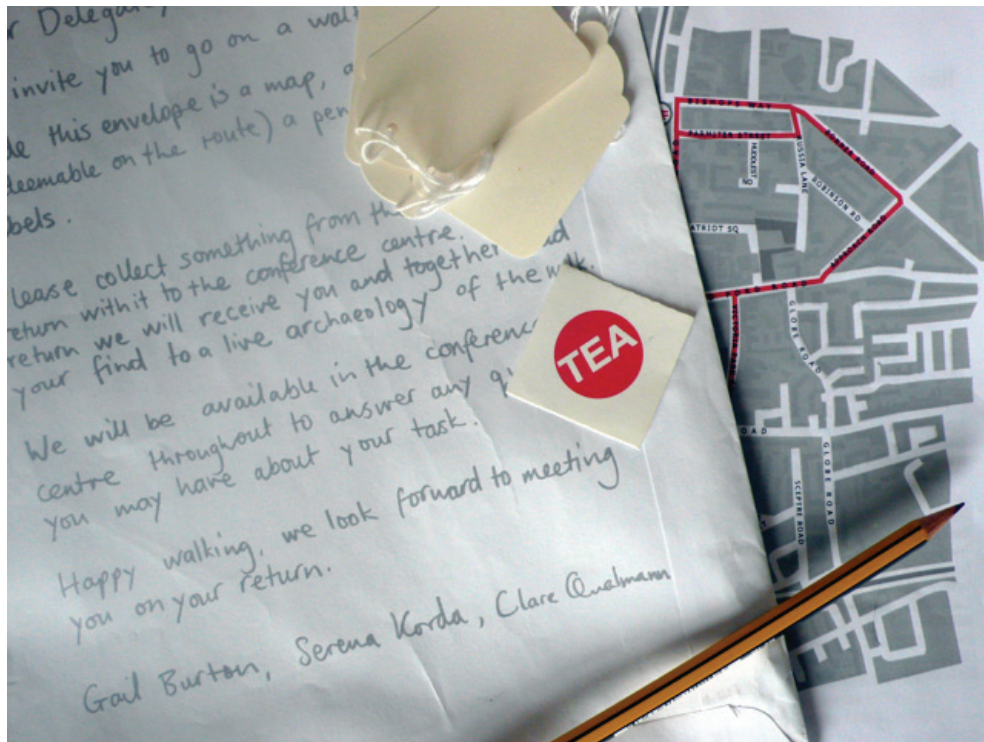 r Delegat
invite you to go on a wal
de this envelope is a map, a
deemable on the route) a pen
bels.
lease collect something from th
eturn with it to the conference centre.
return we will receive you and together
your find to a live archaeology of the walk
We will be available in the conferenc
centre throughout to answer any q
you may have about your task.
Happy walking, we look forward to meeting
you on your return.
Gail Burton, Serena Korda, Clare Qualmann
TEA
BISHOPS WAY
PARMITER STREET
RUSSIA LANE
BONNER ROAD
ROBINSON RD
ATRIOT SQ
ROAD
GLOBE ROAD
OAD
GLOBE ROAD
SCEPTRE ROAD